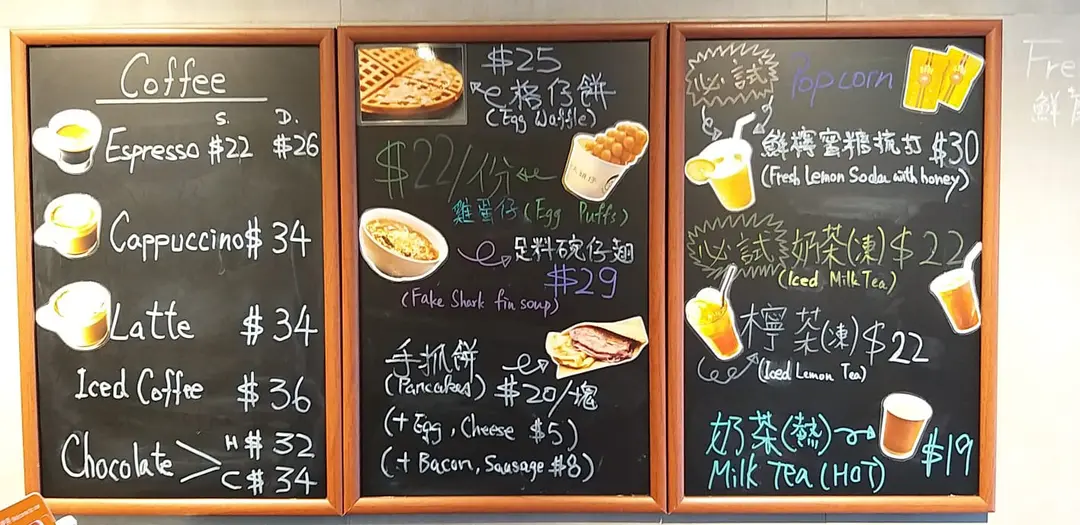 Coffee
S. D.
Espresso $22 $26
Cappuccino $34
Latte $34
Iced Coffee $36
Chocolate H $32
C $34
$25
格仔餅
(Egg Waffle)
$22/份
雞蛋仔 (Egg Puffs)
足料碗仔翅
$29
(Fake Shark fin soup)
手抓餅
(Pancakes) $20/塊
(+ Egg, Cheese $5)
(+ Bacon, Sausage $8)
必試 Popcorn
鮮檸蜜糖梳打 $30
(Fresh Lemon Soda with honey)
必試 奶茶(凍) $22
(Iced Milk Tea)
檸茶(凍) $22
(Iced Lemon Tea)
奶茶(熱)
Milk Tea (HOT) $19
Fre
鮮